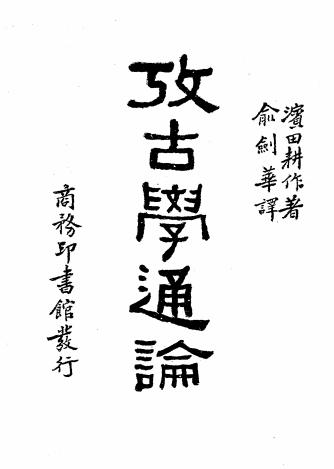 濱田耕作著
俞劍華譯
攷古學通論
商務印書館發行